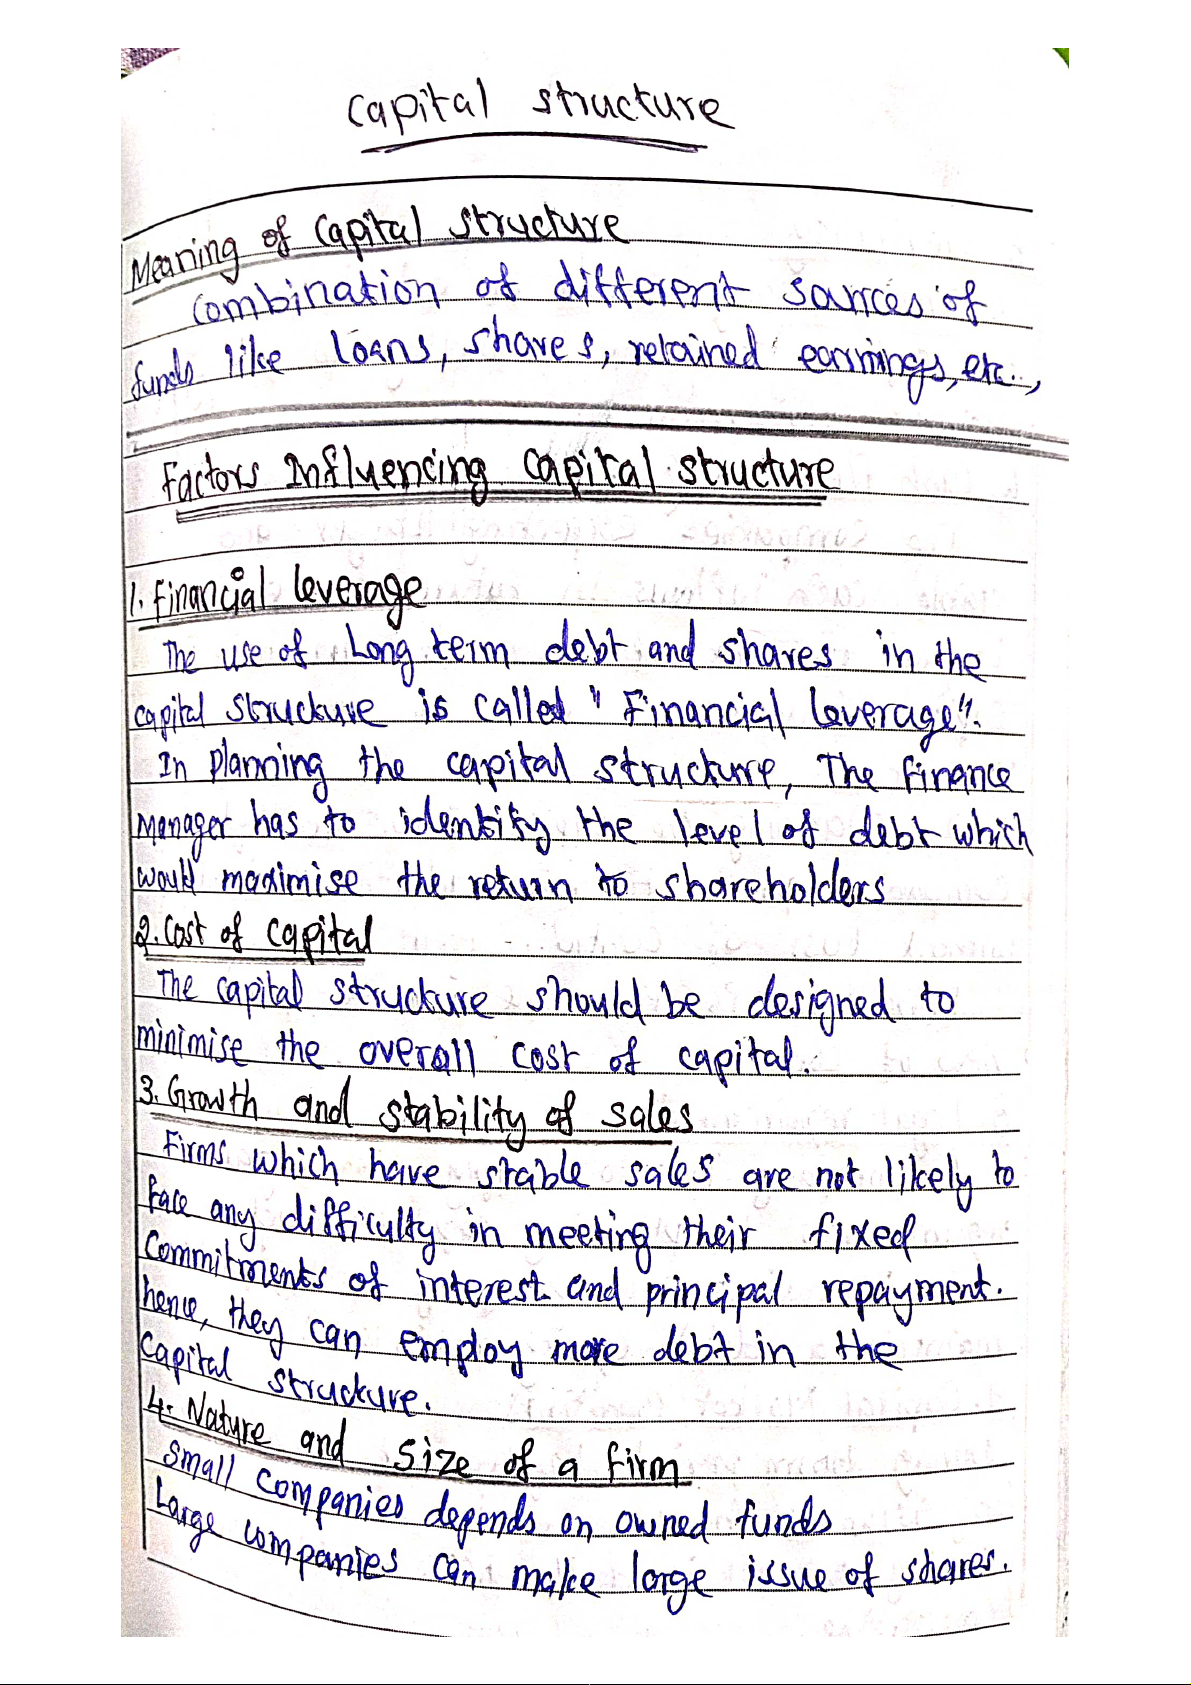 Capital structure
Meaning of Capital structure
Combination of different sources of
funds like loans, shares, retained earnings, etc.,
Factors Influencing Capital structure
1. Financial leverage
The use of Long term debt and shares in the
capital structure is called "Financial leverage".
In planning the capital structure, The finance
Manager has to identify the level of debt which
would maximise the return to shareholders
2. Cost of capital
The capital structure should be designed to
minimise the overall cost of capital.
3. Growth and stability of sales
Firms which have stable sales are not likely to
face any difficulty in meeting their fixed
commitments of interest and principal repayment.
hence, they can employ more debt in the
capital structure.
4. Nature and size of a firm
Small companies depends on owned funds
Large companies can make large issue of shares.